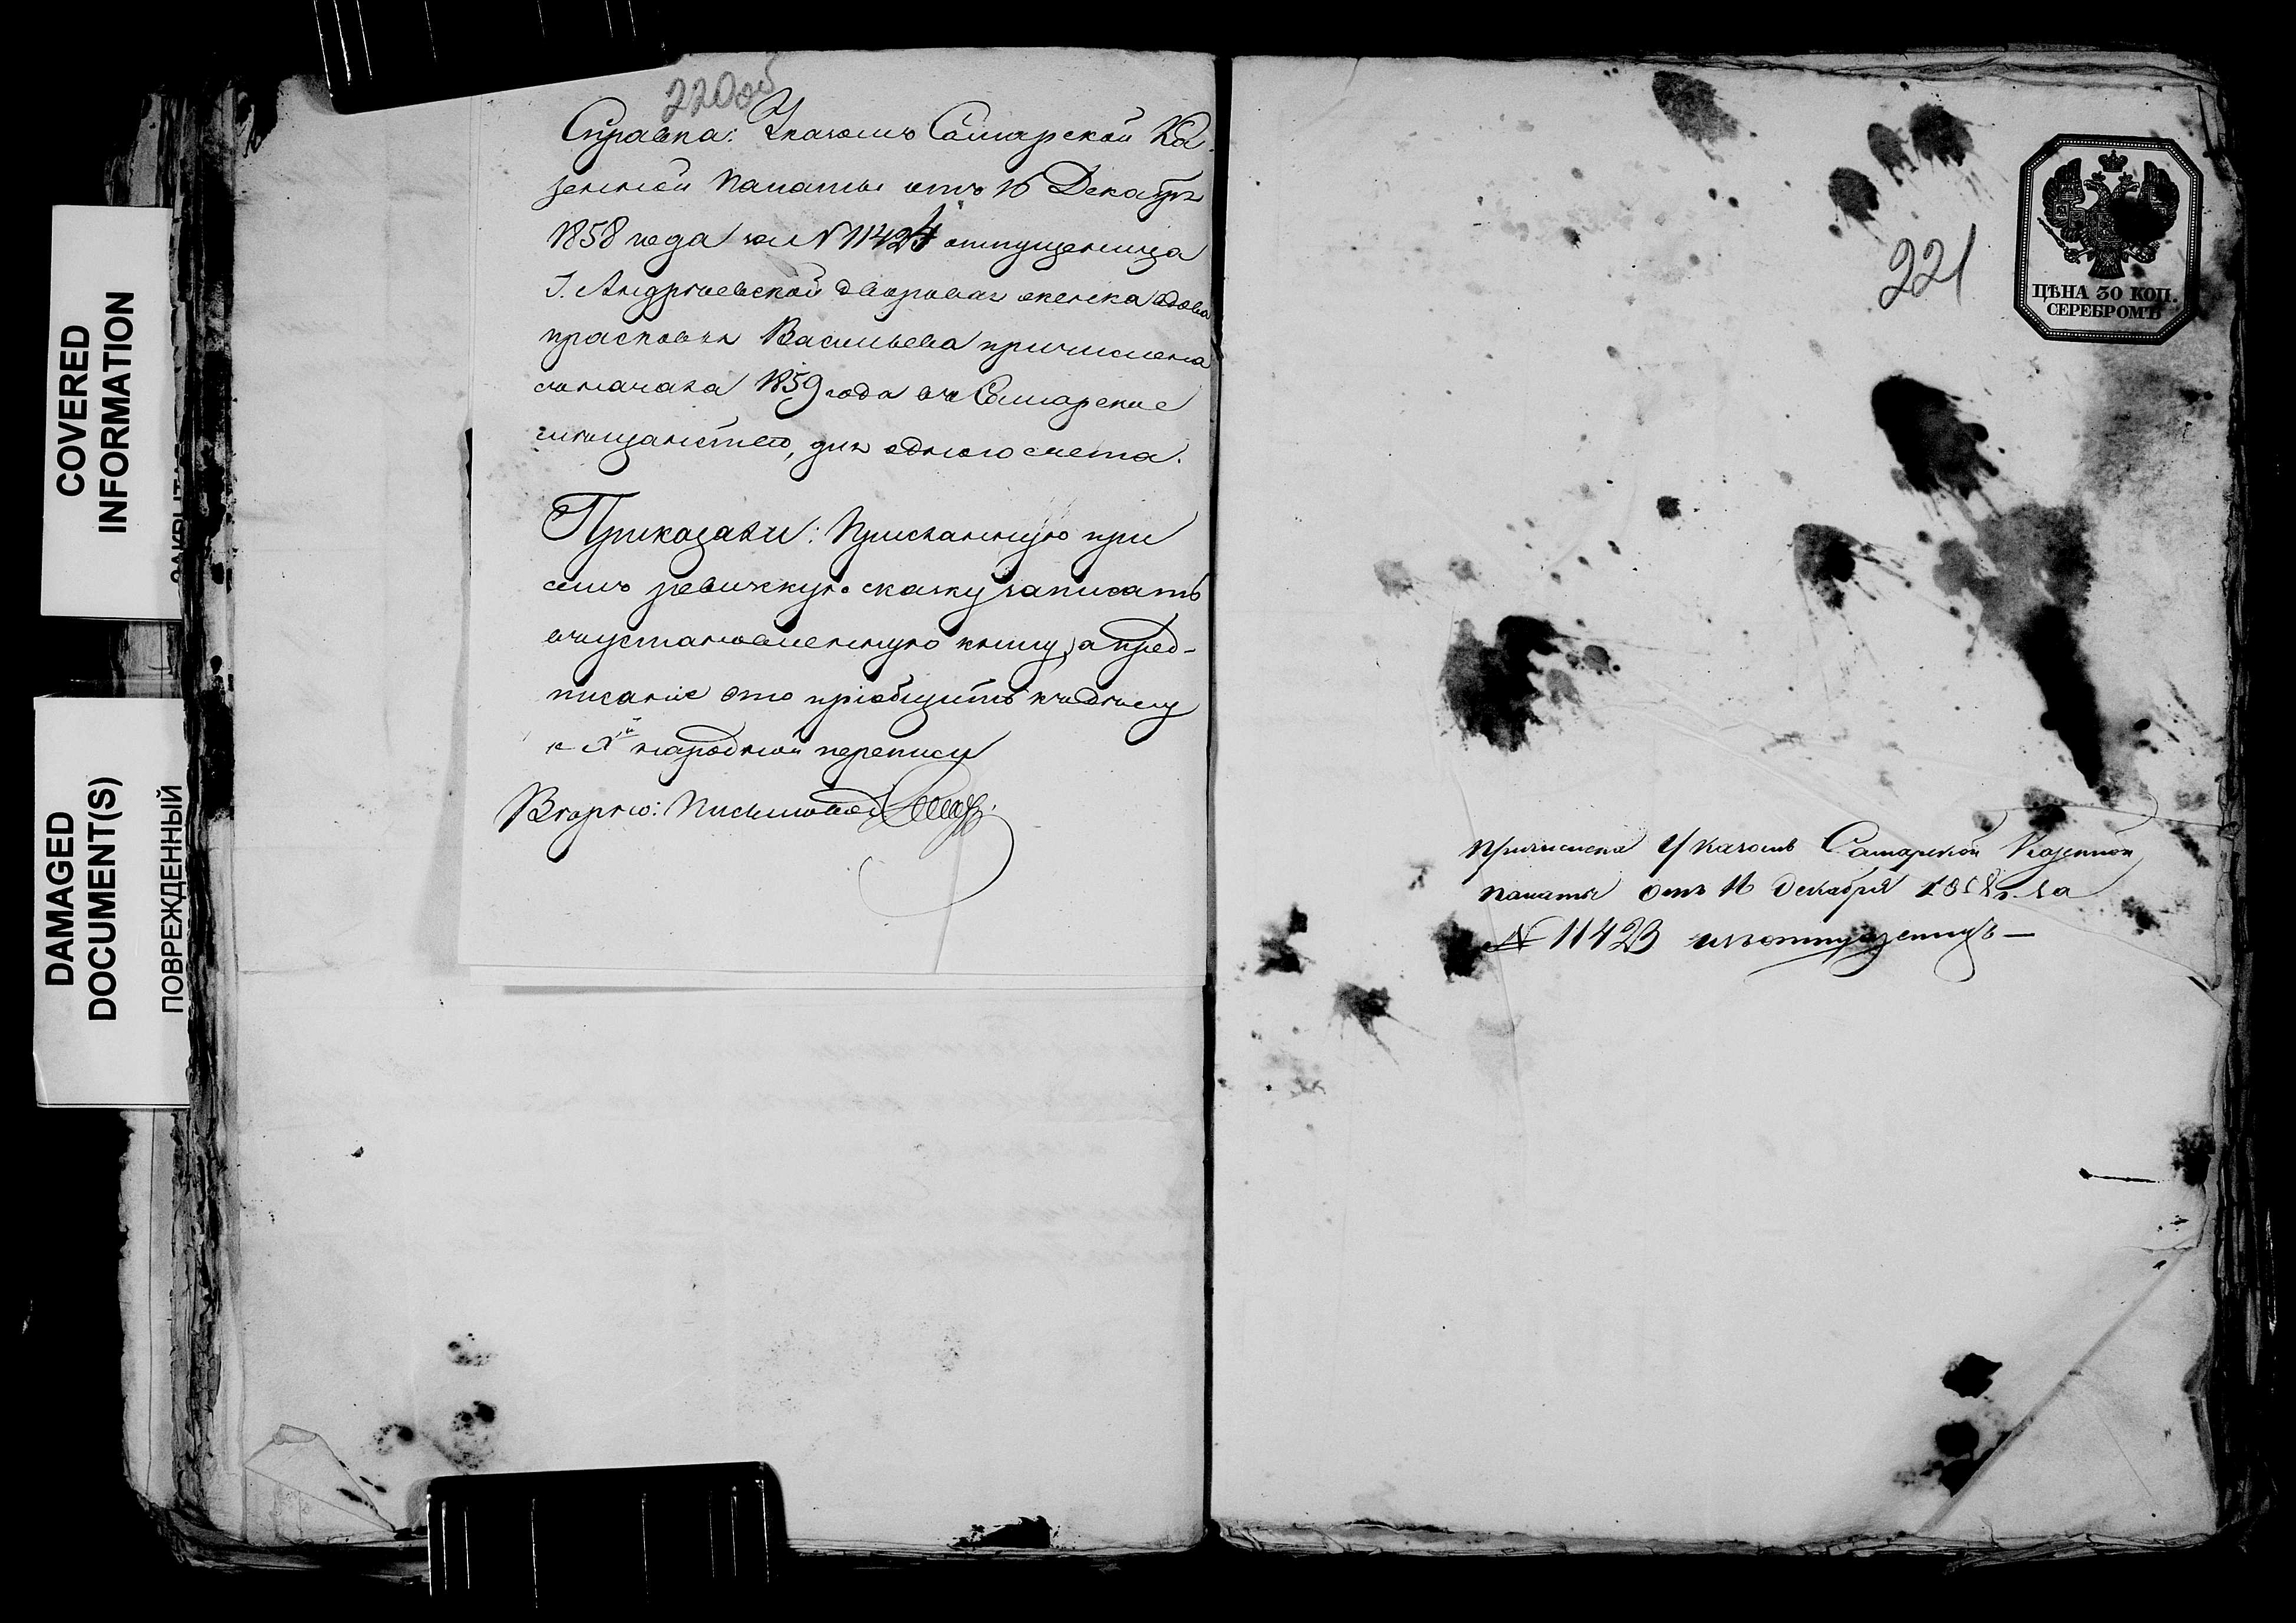 COVERED
INFORMATION
DAMAGED
DOCUMENT(S)
ПОВРЕЖДЕННЫЙ
220об
Справка: Указомъ Самарской Ка-
зенной палаты отъ 16 Декабря
1858 года за N 11424 отпущеница
Г. Андреевской дворовая женка вдова
Прасковья Васильева причислена
съ начала 1859 года въ Самарское
мещанство, для одного счета.
Приказали: Присланную при
семъ ревижскую скаску записать
въ установленную книгу, а пред-
писаніе это пріобщить къ делу
о Xй народной переписи
Верно: Письмовод
221
ЦѢНА 30 КОП.
СЕРЕБРОМЪ
Причислена Указомъ Самарской Казенной
палаты отъ 16 декабря 1858 г. за
N 11423 изъ отпущенницъ —